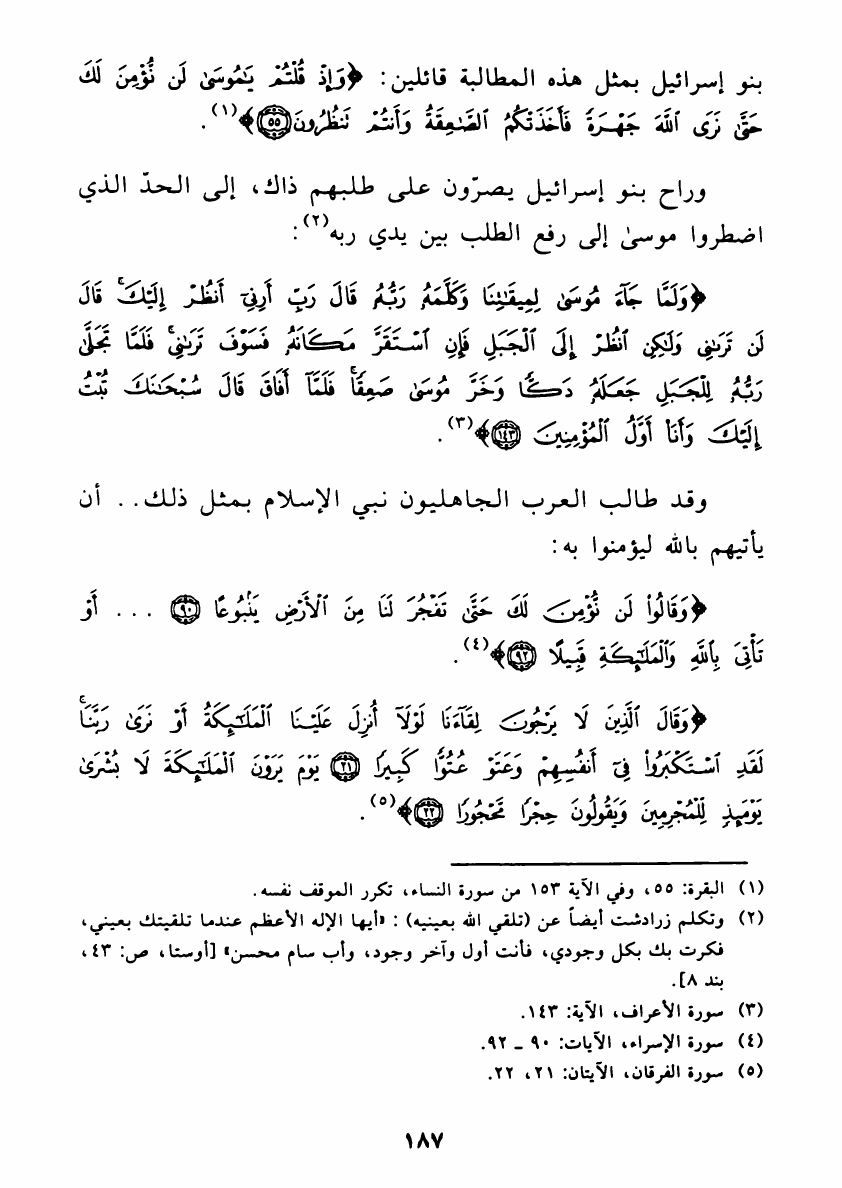 بنو إسرائيل بمثل هذه المطالبة قائلين: ﴿وَإِذْ قُلْتُمْ يَٰمُوسَىٰ لَن نُّؤْمِنَ لَكَ
حَتَّىٰ نَرَى ٱللَّهَ جَهْرَةً فَأَخَذَتْكُمُ ٱلصَّٰعِقَةُ وَأَنتُمْ تَنظُرُونَ ٥٥﴾(١).
وراح بنو إسرائيل يصرّون على طلبهم ذاك، إلى الحدّ الذي
اضطروا موسىٰ إلى رفع الطلب بين يدي ربه(٢):
﴿وَلَمَّا جَآءَ مُوسَىٰ لِمِيقَٰتِنَا وَكَلَّمَهُۥ رَبُّهُۥ قَالَ رَبِّ أَرِنِىٓ أَنظُرْ إِلَيْكَ ۚ قَالَ
لَن تَرَىٰنِى وَلَٰكِنِ ٱنظُرْ إِلَى ٱلْجَبَلِ فَإِنِ ٱسْتَقَرَّ مَكَانَهُۥ فَسَوْفَ تَرَىٰنِى ۚ فَلَمَّا تَجَلَّىٰ
رَبُّهُۥ لِلْجَبَلِ جَعَلَهُۥ دَكًّا وَخَرَّ مُوسَىٰ صَعِقًا ۚ فَلَمَّآ أَفَاقَ قَالَ سُبْحَٰنَكَ تُبْتُ
إِلَيْكَ وَأَنَا۠ أَوَّلُ ٱلْمُؤْمِنِينَ ١٤٣﴾(٣).
وقد طالب العرب الجاهليون نبي الإسلام بمثل ذلك.. أن
يأتيهم بالله ليؤمنوا به:
﴿وَقَالُوا۟ لَن نُّؤْمِنَ لَكَ حَتَّىٰ تَفْجُرَ لَنَا مِنَ ٱلْأَرْضِ يَنۢبُوعًا ٩٠ ... أَوْ
تَأْتِىَ بِٱللَّهِ وَٱلْمَلَٰٓئِكَةِ قَبِيلًا ٩٢﴾(٤).
﴿وَقَالَ ٱلَّذِينَ لَا يَرْجُونَ لِقَآءَنَا لَوْلَآ أُنزِلَ عَلَيْنَا ٱلْمَلَٰٓئِكَةُ أَوْ نَرَىٰ رَبَّنَا ۗ
لَقَدِ ٱسْتَكْبَرُوا۟ فِىٓ أَنفُسِهِمْ وَعَتَوْ عُتُوًّا كَبِيرًا ٢١ يَوْمَ يَرَوْنَ ٱلْمَلَٰٓئِكَةَ لَا بُشْرَىٰ
يَوْمَئِذٍ لِّلْمُجْرِمِينَ وَيَقُولُونَ حِجْرًا مَّحْجُورًا ٢٢﴾(٥).
(١) البقرة: ٥٥، وفي الآية ١٥٣ من سورة النساء، تكرر الموقف نفسه.
(٢) وتكلم زرادشت أيضاً عن (تلقي الله بعينيه) : «أيها الإله الأعظم عندما تلقيتك بعيني،
فكرت بك بكل وجودي، فأنت أول وآخر وجود، وأب سام محسن» [أوستا، ص: ٤٣،
بند ٨].
(٣) سورة الأعراف، الآية: ١٤٣.
(٤) سورة الإسراء، الآيات: ٩٠ ــ ٩٢.
(٥) سورة الفرقان، الآيتان: ٢١، ٢٢.
١٨٧